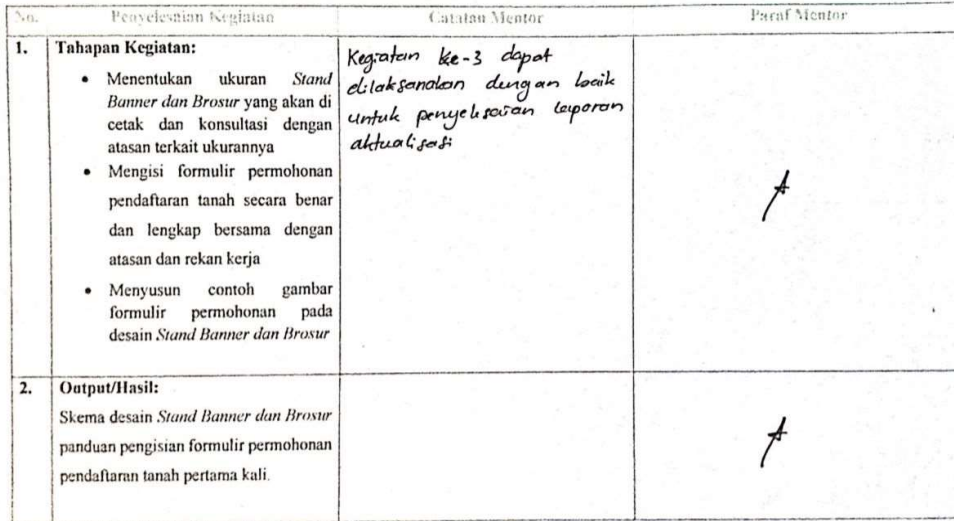 No. Penyelesaian Kegiatan Catatan Mentor Paraf Mentor
1. Tahapan Kegiatan:
• Menentukan ukuran Stand
Banner dan Brosur yang akan di
cetak dan konsultasi dengan
atasan terkait ukurannya
• Mengisi formulir permohonan
pendaftaran tanah secara benar
dan lengkap bersama dengan
atasan dan rekan kerja
• Menyusun contoh gambar
formulir permohonan pada
desain Stand Banner dan Brosur
Kegiatan ke-3 dapat
dilaksanakan dengan baik
untuk penyelesaian laporan
aktualisasi
2. Output/Hasil:
Skema desain Stand Banner dan Brosur
panduan pengisian formulir permohonan
pendaftaran tanah pertama kali.